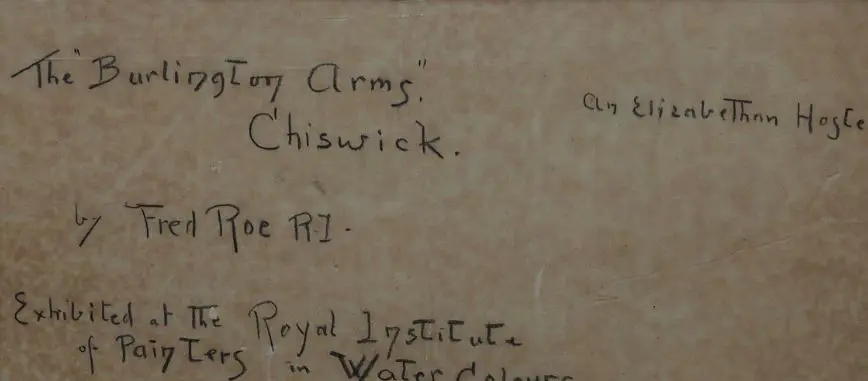 The "Burlington Arms".
Chiswick.
An Elizabethan Hoste
by Fred Roe R.I.
Exhibited at The Royal Institute
of Painters in Water Colours